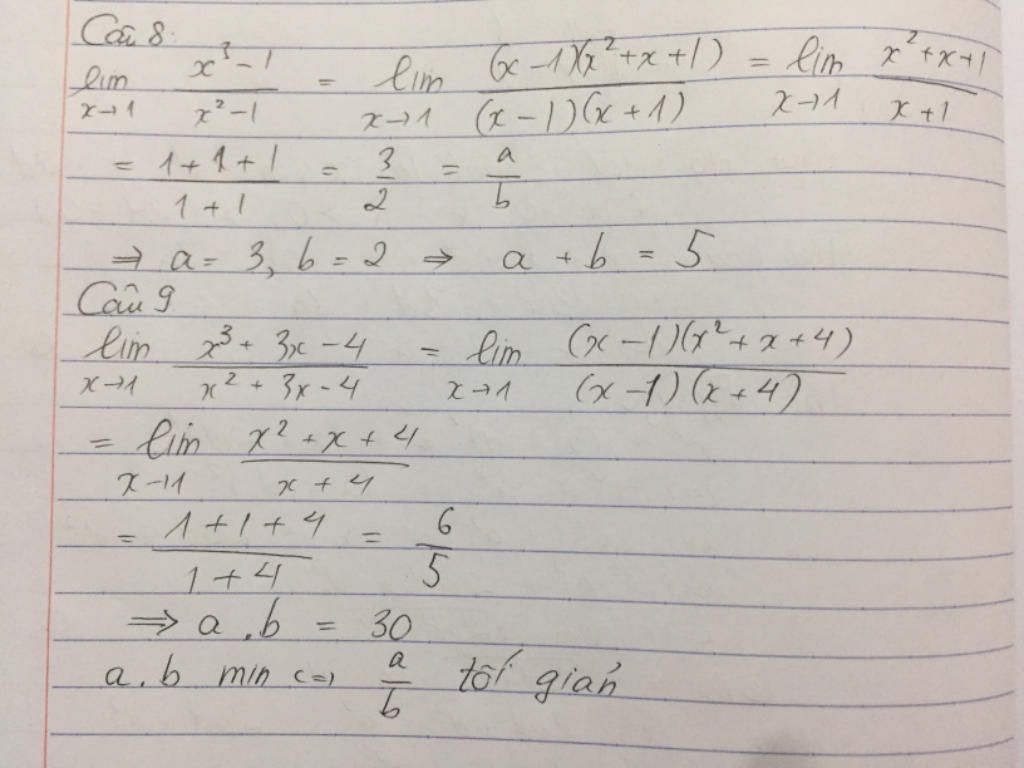 Câu 8:
lim x→1 (x³ - 1)/(x² - 1) = lim x→1 ((x - 1)(x² + x + 1))/((x - 1)(x + 1)) = lim x→1 (x² + x + 1)/(x + 1)
= (1 + 1 + 1)/(1 + 1) = 3/2 = a/b
⇒ a = 3, b = 2 ⇒ a + b = 5
Câu 9
lim x→1 (x³ + 3x - 4)/(x² + 3x - 4) = lim x→1 ((x - 1)(x² + x + 4))/((x - 1)(x + 4))
= lim x→1 (x² + x + 4)/(x + 4)
= (1 + 1 + 4)/(1 + 4) = 6/5
⇒ a.b = 30
a.b min <=> a/b tối giản